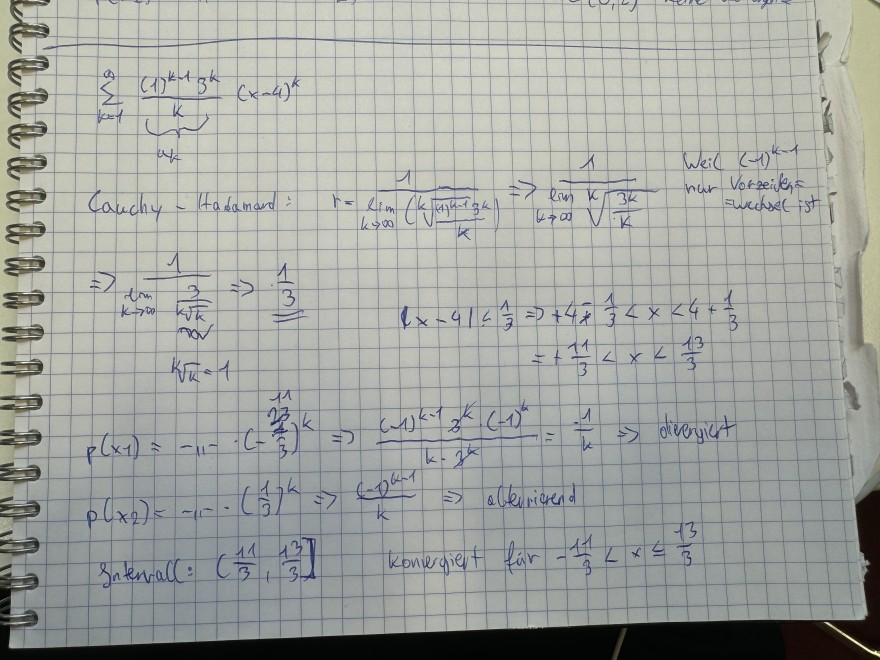 ∞
∑ (1)^{k-1} 3^k / k (x-4)^k
k=1
a_k
Cauchy - Hadamard: r = 1 / lim_{k→∞} (^k√((-1)^{k-1} 3^k / k)) => 1 / lim_{k→∞} ^k√(3^k / k) Weil (-1)^{k-1}
nur Vorzeichen=
=wechsel ist
=> 1 / lim_{k→∞} 3 / ^k√k => 1/3
|x-4| ≤ 1/3 => +4 - 1/3 < x < 4 + 1/3
= + 11/3 < x < 13/3
^k√k = 1
p(x1) = -„- · (- /3)^k => (-1)^{k-1} 3^k · (-1)^k / k · 3^k = -1/k => divergiert
p(x2) = -„- · (1/3)^k => (-1)^{k-1} / k => alternierend
Intervall: (11/3, 13/3] konvergiert für - 11/3 < x ≤ 13/3